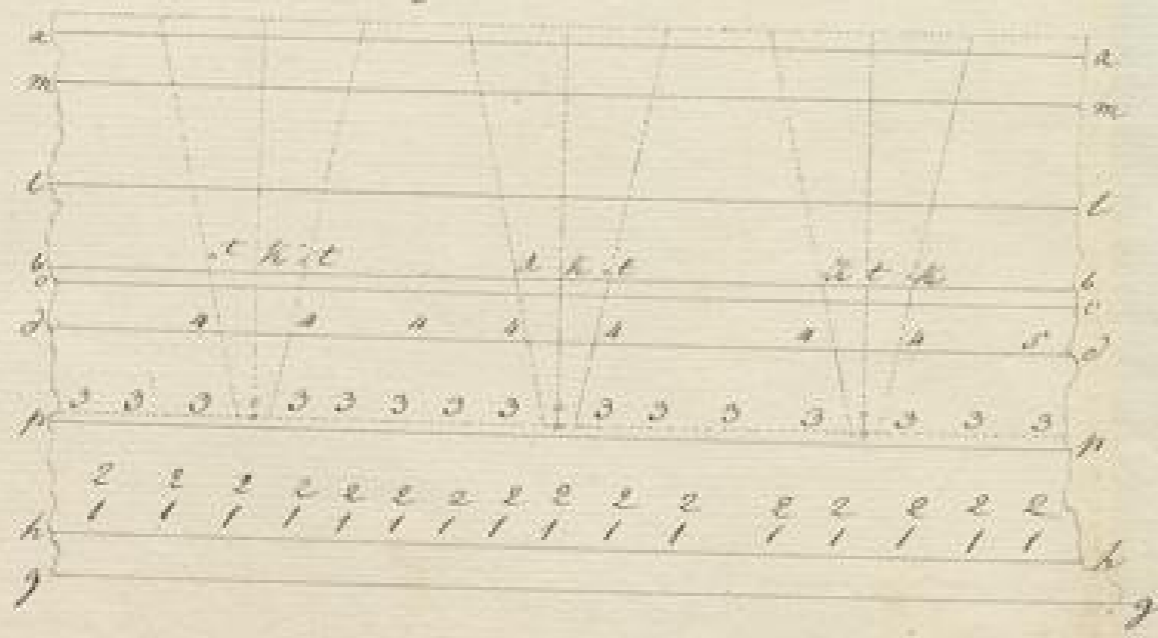 a a
m m
l l
t k t t k t t t k
b b
c c
d 4 4 4 4 4 4 4 5 d
3 3 3 1 3 3 3 3 3 I 3 3 3 3 I 3 3 3
p p
2 2 2 2 2 2 2 2 2 2 2 2 2 2 2 2
1 1 1 1 1 1 1 1 1 1 1 1 1 1 1 1
h h
g g